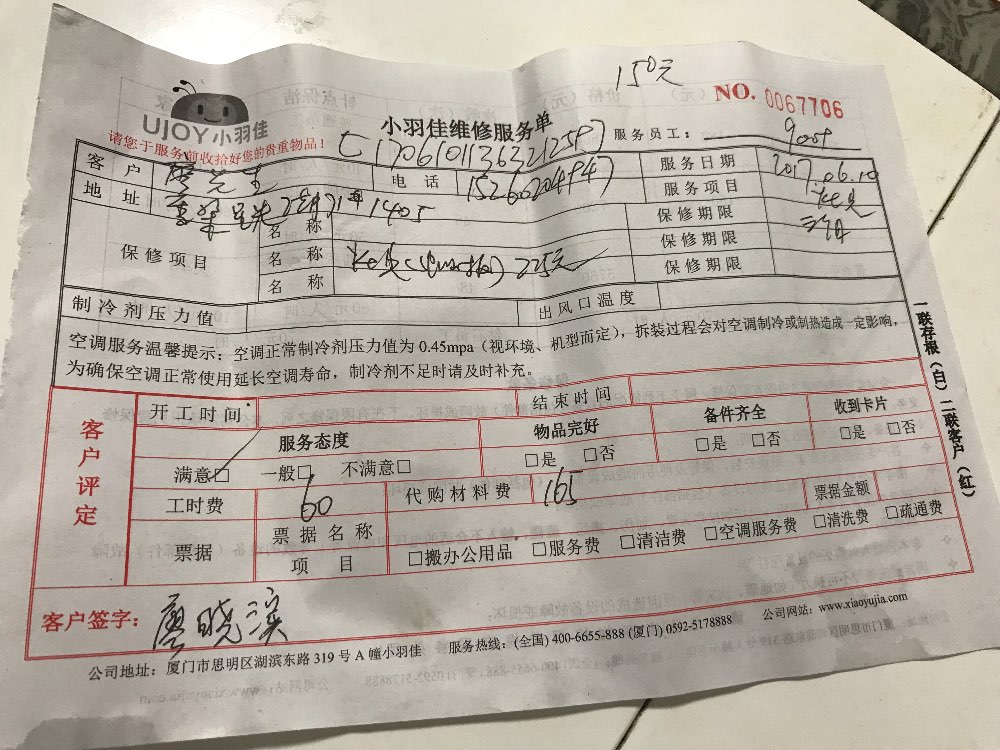 150元
NO. 0067706
UJOY小羽佳
小羽佳维修服务单
服务员工：
请您于服务前收拾好您的贵重物品！
客户 廖先生 电话 15260204947 服务日期 2017.06.10
地址 1405 服务项目
保修项目
名称 保修期限
名称 225元 保修期限
名称 保修期限
制冷剂压力值 出风口温度
空调服务温馨提示：空调正常制冷剂压力值为 0.45mpa（视环境、机型而定），拆装过程会对空调制冷或制热造成一定影响，
为确保空调正常使用延长空调寿命，制冷剂不足时请及时补充。
客户评定
开工时间 结束时间
服务态度 物品完好 备件齐全 收到卡片
满意□ 一般□ 不满意□ □是 □否 □是 □否 □是 □否
工时费 60 代购材料费 165 票据金额
票据 票据名称
项目 □搬办公用品 □服务费 □清洁费 □空调服务费 □清洗费 □疏通费
客户签字： 廖晓滨
公司地址：厦门市思明区湖滨东路 319 号 A 幢小羽佳 服务热线：(全国) 400-6655-888 (厦门) 0592-5178888 公司网站：www.xiaoyujia.com
一联存根（白）二联客户（红）